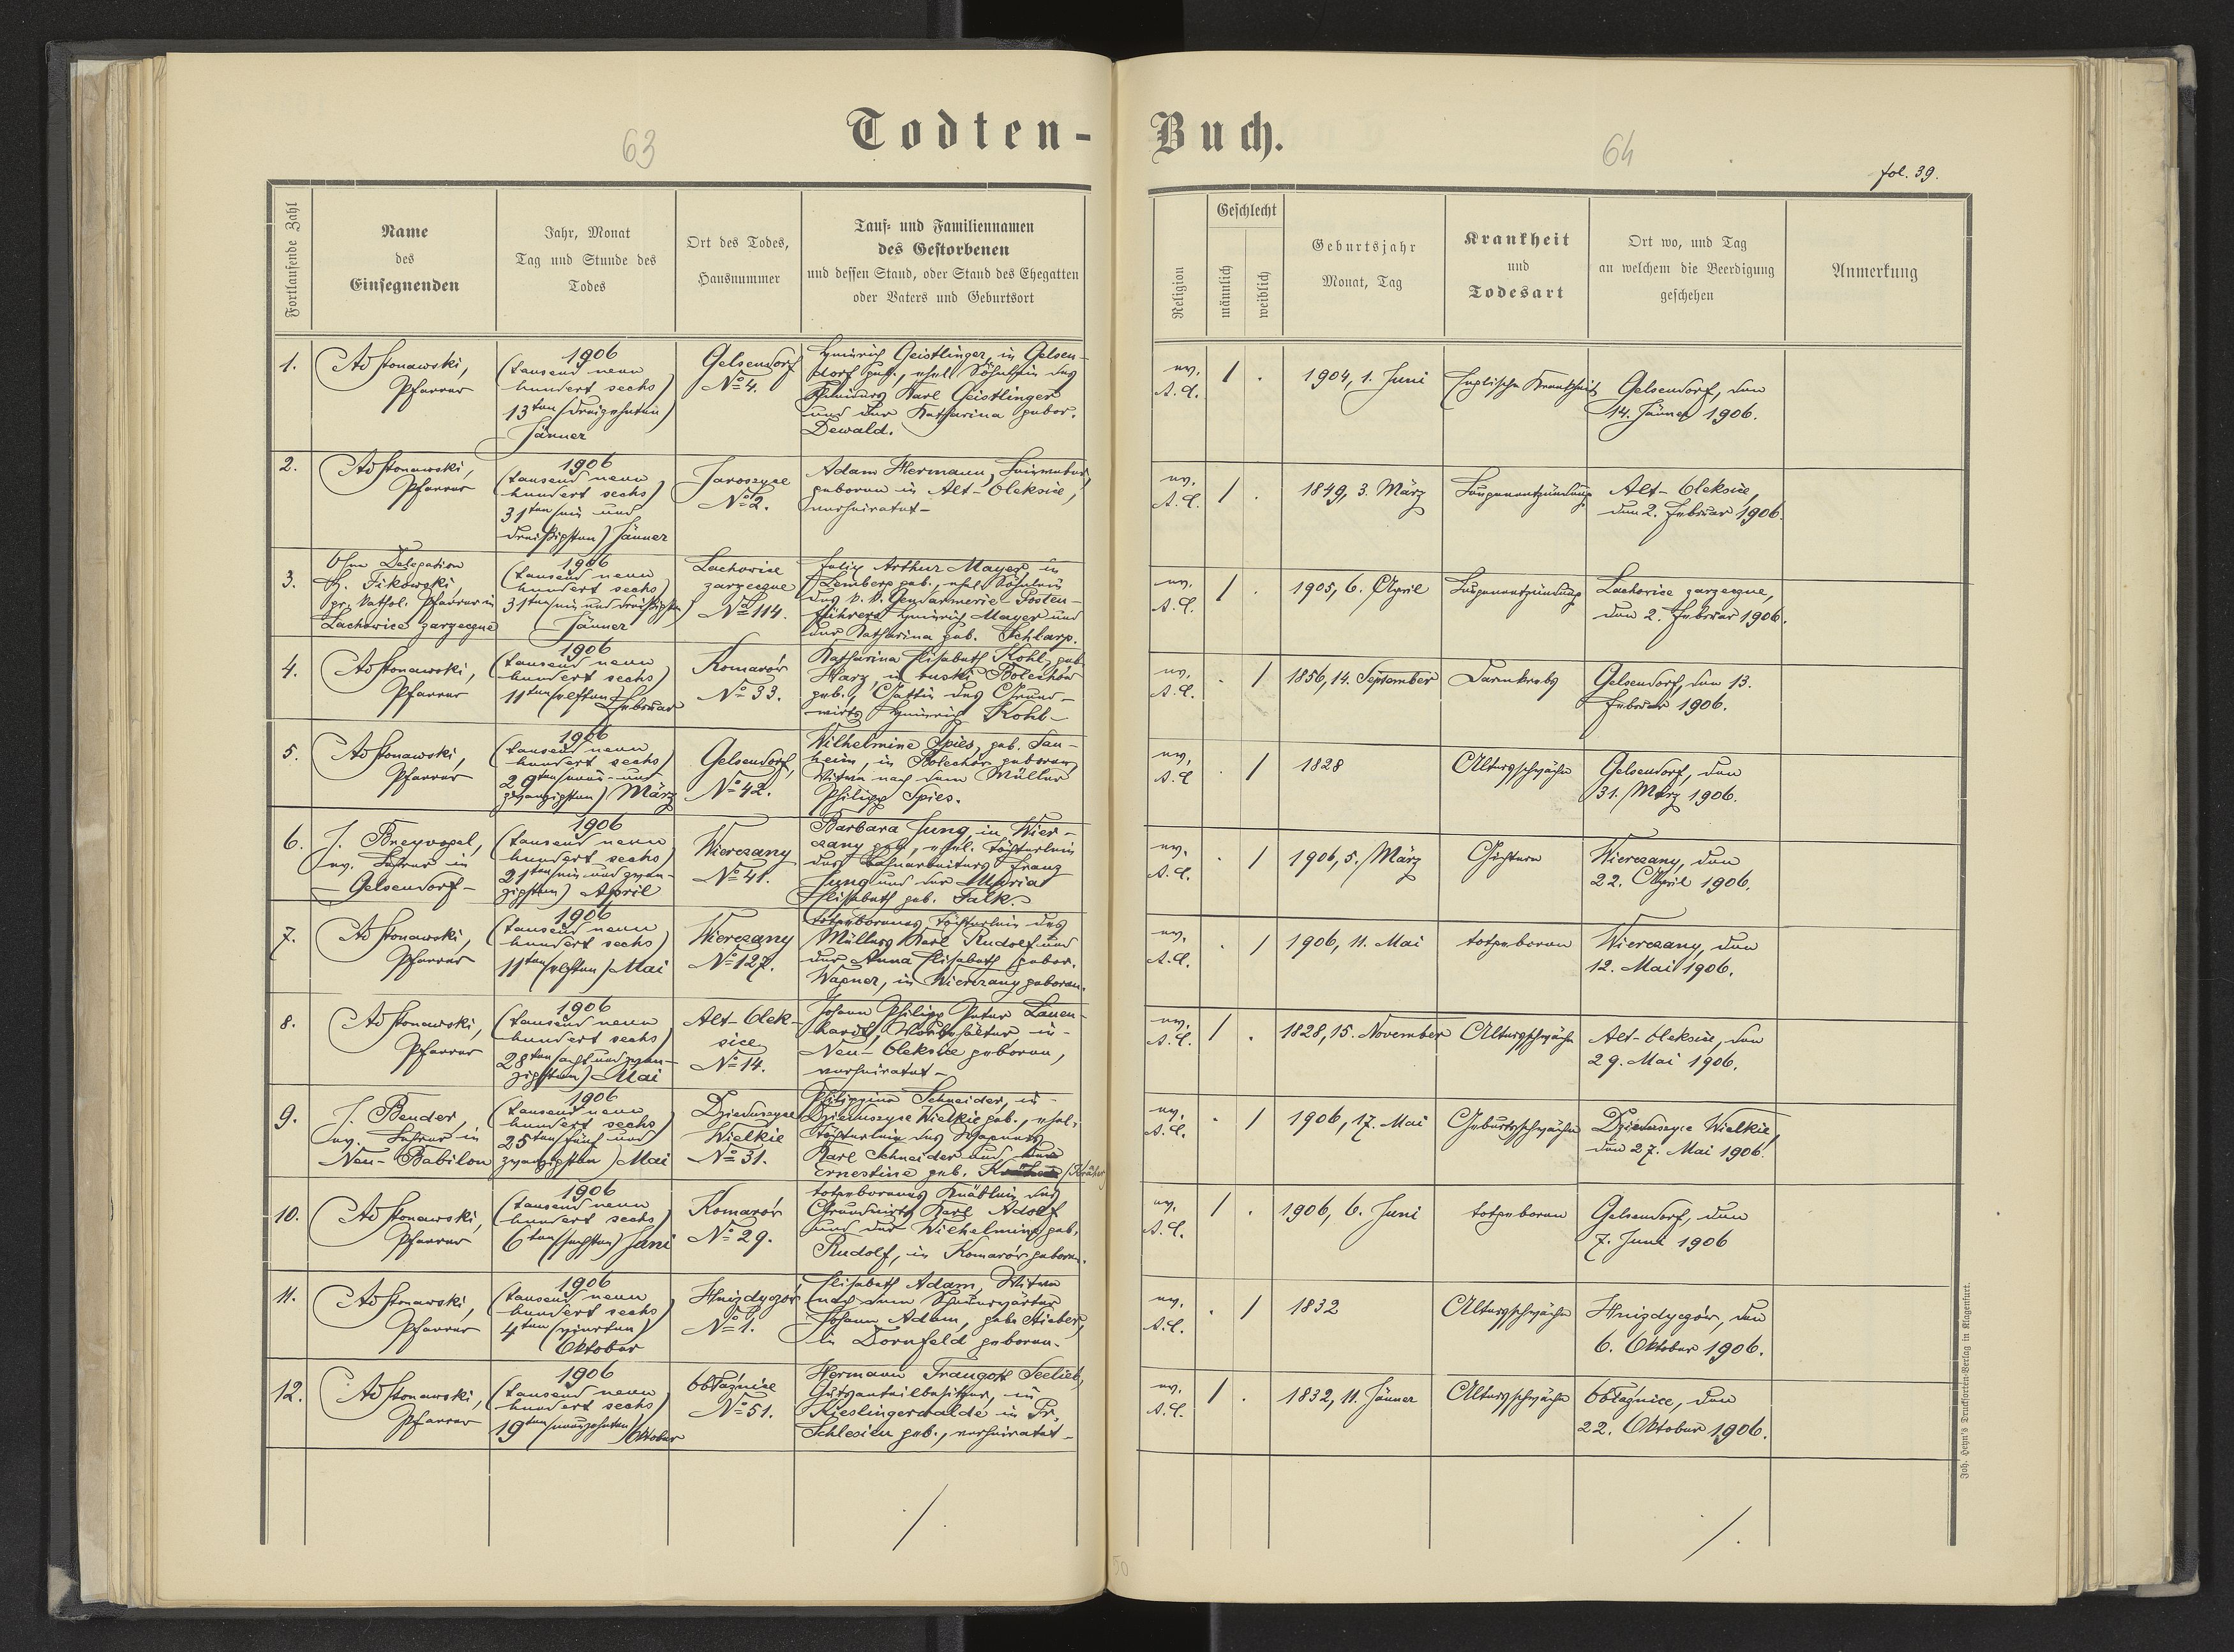 Todten-
63
Fortlaufende Zahl
Name
des
Einsegnenden
Jahr, Monat
Tag und Stunde des
Todes
Ort des Todes,
Hausnummer
Tauf- und Familiennamen
des Gestorbenen
und dessen Stand, oder Stand des Ehegatten
oder Vaters und Geburtsort
1.
Ad Stonawski,
Pfarrer
1906
(tausend neun
hundert sechs)
13ten (dreizehnten)
Jänner
Gelsendorf
No 4.
Heinrich Geistlinger, in Gelsen-
dorf geb., ehel. Söhnlein des
Karl Geistlinger
und der Katharina gebor.
Dewald.
2.
Ad Stonawski,
Pfarrer
1906
(tausend neun
hundert sechs)
31ten (ein und
dreißigsten) Jänner
Jaroszyce
No 2.
Adam Hermann,
geboren in Alt-Oleksice,
verheiratet-
3.
Ohne Delegation
H. Fikowski,
gr. kathol. Pfarrer in
Lachowice zarzeczne
1906
(tausend neun
hundert sechs)
31ten (ein und dreißigsten)
Jänner
Lachowice
zarzeczne
No 114.
Felix Arthur Mayer, in
Lemberg geb., ehel. Söhnlein
des k. k. Gendarmerie-Posten-
führers Heinrich Mayer und
der Katharina geb. Schlarp.
4.
Ad Stonawski,
Pfarrer
1906
(tausend neun
hundert sechs)
11ten (elften) Februar
Komarów
No 33.
Katharina Elisabeth Kohl, geb.
Harz, in ruski Bolechów
geb., Gattin des Grund-
wirts Heinrich Kohl-
5.
Ad Stonawski,
Pfarrer
1906
(tausend neun
hundert sechs)
29ten (neun- und
zwanzigsten) März
Gelsendorf,
No 42.
Wilhelmine Spies, geb. Sau-
heim, in Bolechów geboren,
Witwe nach dem Müller
Philipp Spies.
6.
J. Breyvogel,
ev. Lehrer in
- Gelsendorf -
1906
(tausend neun
hundert sechs)
21ten (ein und zwan-
zigsten) April
Wierczany
No 41.
Barbara Jung, in Wier-
czany geb., ehel. Töchterlein
des Bahnarbeiters Franz
Jung und der Maria
Elisabeth geb. Falk.-
7.
Ad Stonawski,
Pfarrer
1906
(tausend neun
hundert sechs)
11ten (elften) Mai
Wierczany
No 127.
totgeborenes Töchterlein des
Müllers Karl Rudolf und
der Anna Elisabeth gebor.
Wagner, in Wierczany geboren.
8.
Ad Stonawski,
Pfarrer
1906
(tausend neun
hundert sechs)
28ten (acht und zwan-
zigsten) Mai
Alt-Olek-
sice
No 14.
Johann Philipp Peter Lauen-
hardt, in
Neu-Oleksice geboren,
verheiratet-
9.
J. Bender,
ev. Lehrer in
Neu-Babilon
1906
(tausend neun
hundert sechs)
25ten (fünf und
zwanzigsten) Mai
Dzieduszyce
Wielkie
No 31.
Philippine Schneider, in-
Dzieduszyce Wielkie geb., ehel.
Töchterlein des Wagners
Karl Schneider und der
Ernestine geb.
10.
Ad Stonawski,
Pfarrer
1906
(tausend neun
hundert sechs)
6ten (sechsten) Juni
Komarów
No 29.
totgeborenes Knäblein des
Grundwirts Karl Adolf
und der Wilhelmine geb.
Rudolf, in Komarów geboren.
11.
Ad Stonawski,
Pfarrer
1906
(tausend neun
hundert sechs)
4ten (vierten)
Oktober
Hnizdyczów
No 1.
Elisabeth Adam, Witwe
nach dem
Johann Adam, geb. Stieber,
in Dornfeld geboren.
12.
Ad Stonawski,
Pfarrer
1906
(tausend neun
hundert sechs)
19ten (neunzehnten) Oktober
Obłaźnice
No 51.
Hermann Traugott Seelieb,
Gutsanteilbesitzer, in
Kieslingswalde in Pr.
Schlesien geb., verheiratet-
Buch.
64
fol. 39.
Religion
Geschlecht
männlich
weiblich
Geburtsjahr
Monat, Tag
Krankheit
und
Todesart
Ort wo, und Tag
an welchem die Beerdigung
geschehen
Anmerkung
ev.
A.C.
1
.
1904, 1. Juni
Englische Krankheit
Gelsendorf, den
14. Jänner 1906.
ev.
A.C.
1
.
1849, 3. März
Lungenentzündung
Alt-Oleksice,
den 2. Februar 1906.
ev.
A.C.
1
.
1905, 6. April
Lungenentzündung
Lachowice zarzeczne,
den 2. Februar 1906.
ev.
A.C.
.
1
1856, 14. September
Darmkrebs
Gelsendorf, den 13.
Februar 1906.
ev.
A.C.
.
1
1828
Altersschwäche
Gelsendorf, den
31. März 1906.
ev.
A.C.
.
1
1906, 5. März
Gichtern
Wierczany, den
22. April 1906.
ev.
A.C.
.
1
1906, 11. Mai
totgeboren
Wierczany, den
12. Mai 1906.
ev.
A.C.
1
.
1828, 15. November
Altersschwäche
Alt-Oleksice, den
29. Mai 1906.
ev.
A.C.
.
1
1906, 17. Mai
Geburtsschwäche
Dzieduszyce Wielkie,
den 27. Mai 1906.
ev.
A.C.
1
.
1906, 6. Juni
totgeboren
Gelsendorf, den
7. Juni 1906
ev.
A.C.
.
1
1832
Altersschwäche
Hnizdyczów, den
6. Oktober 1906.
ev.
A.C.
1
.
1832, 11. Jänner
Altersschwäche
Obłaźnice, den
22. Oktober 1906.
Joh. Heyn's Drucksorten-Verlag in Klagenfurt.
50